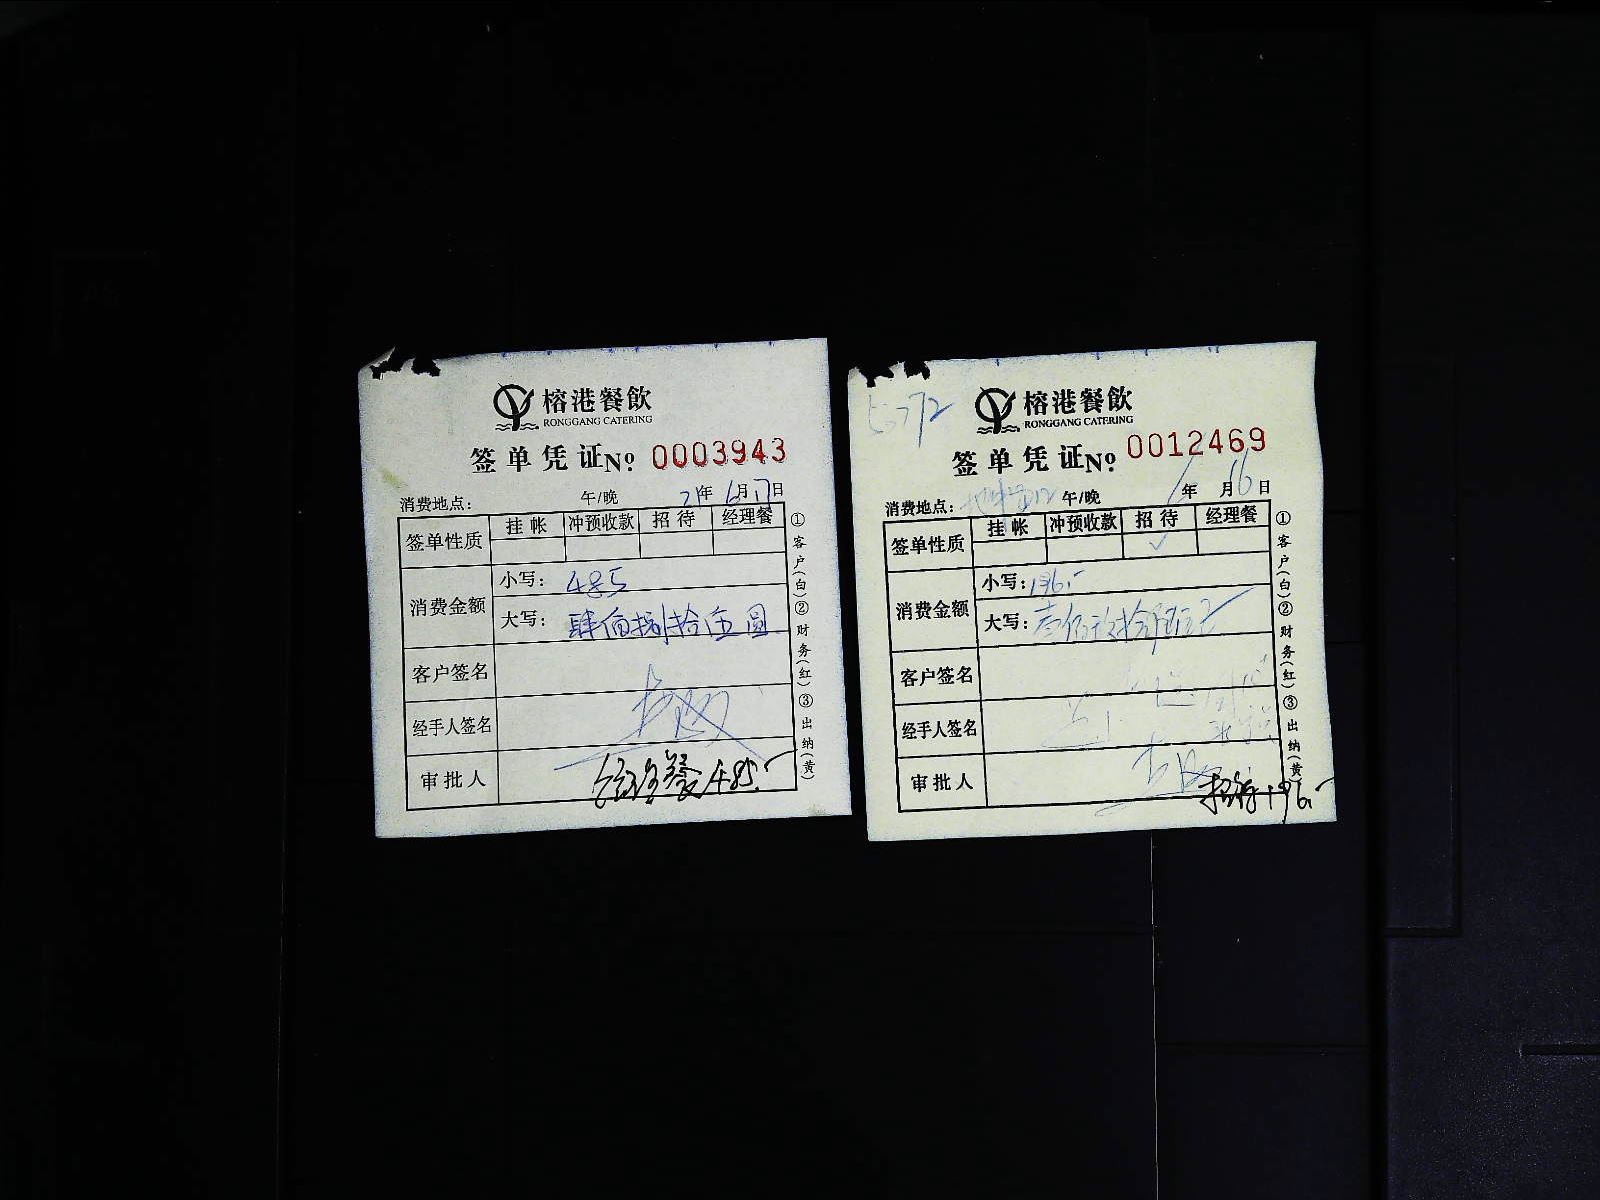 榕港餐飲
RONGGANG CATERING
签单凭证 No 0003943
消费地点： 午/晚 21年6月17日
签单性质 挂帐 冲预收款 招待 经理餐
消费金额 小写：485
大写：肆佰捌拾伍圆
客户签名
经手人签名
审批人 经理餐 485.-
①客户(白)②财务(红)③出纳(黄)
榕港餐飲
RONGGANG CATERING
签单凭证 No 0012469
消费地点： 午/晚 年 月16日
签单性质 挂帐 冲预收款 招待 经理餐
✓
消费金额 小写：196.-
大写：壹佰玖拾陆元
客户签名
经手人签名
审批人
招待 196.-
①客户(白)②财务(红)③出纳(黄)